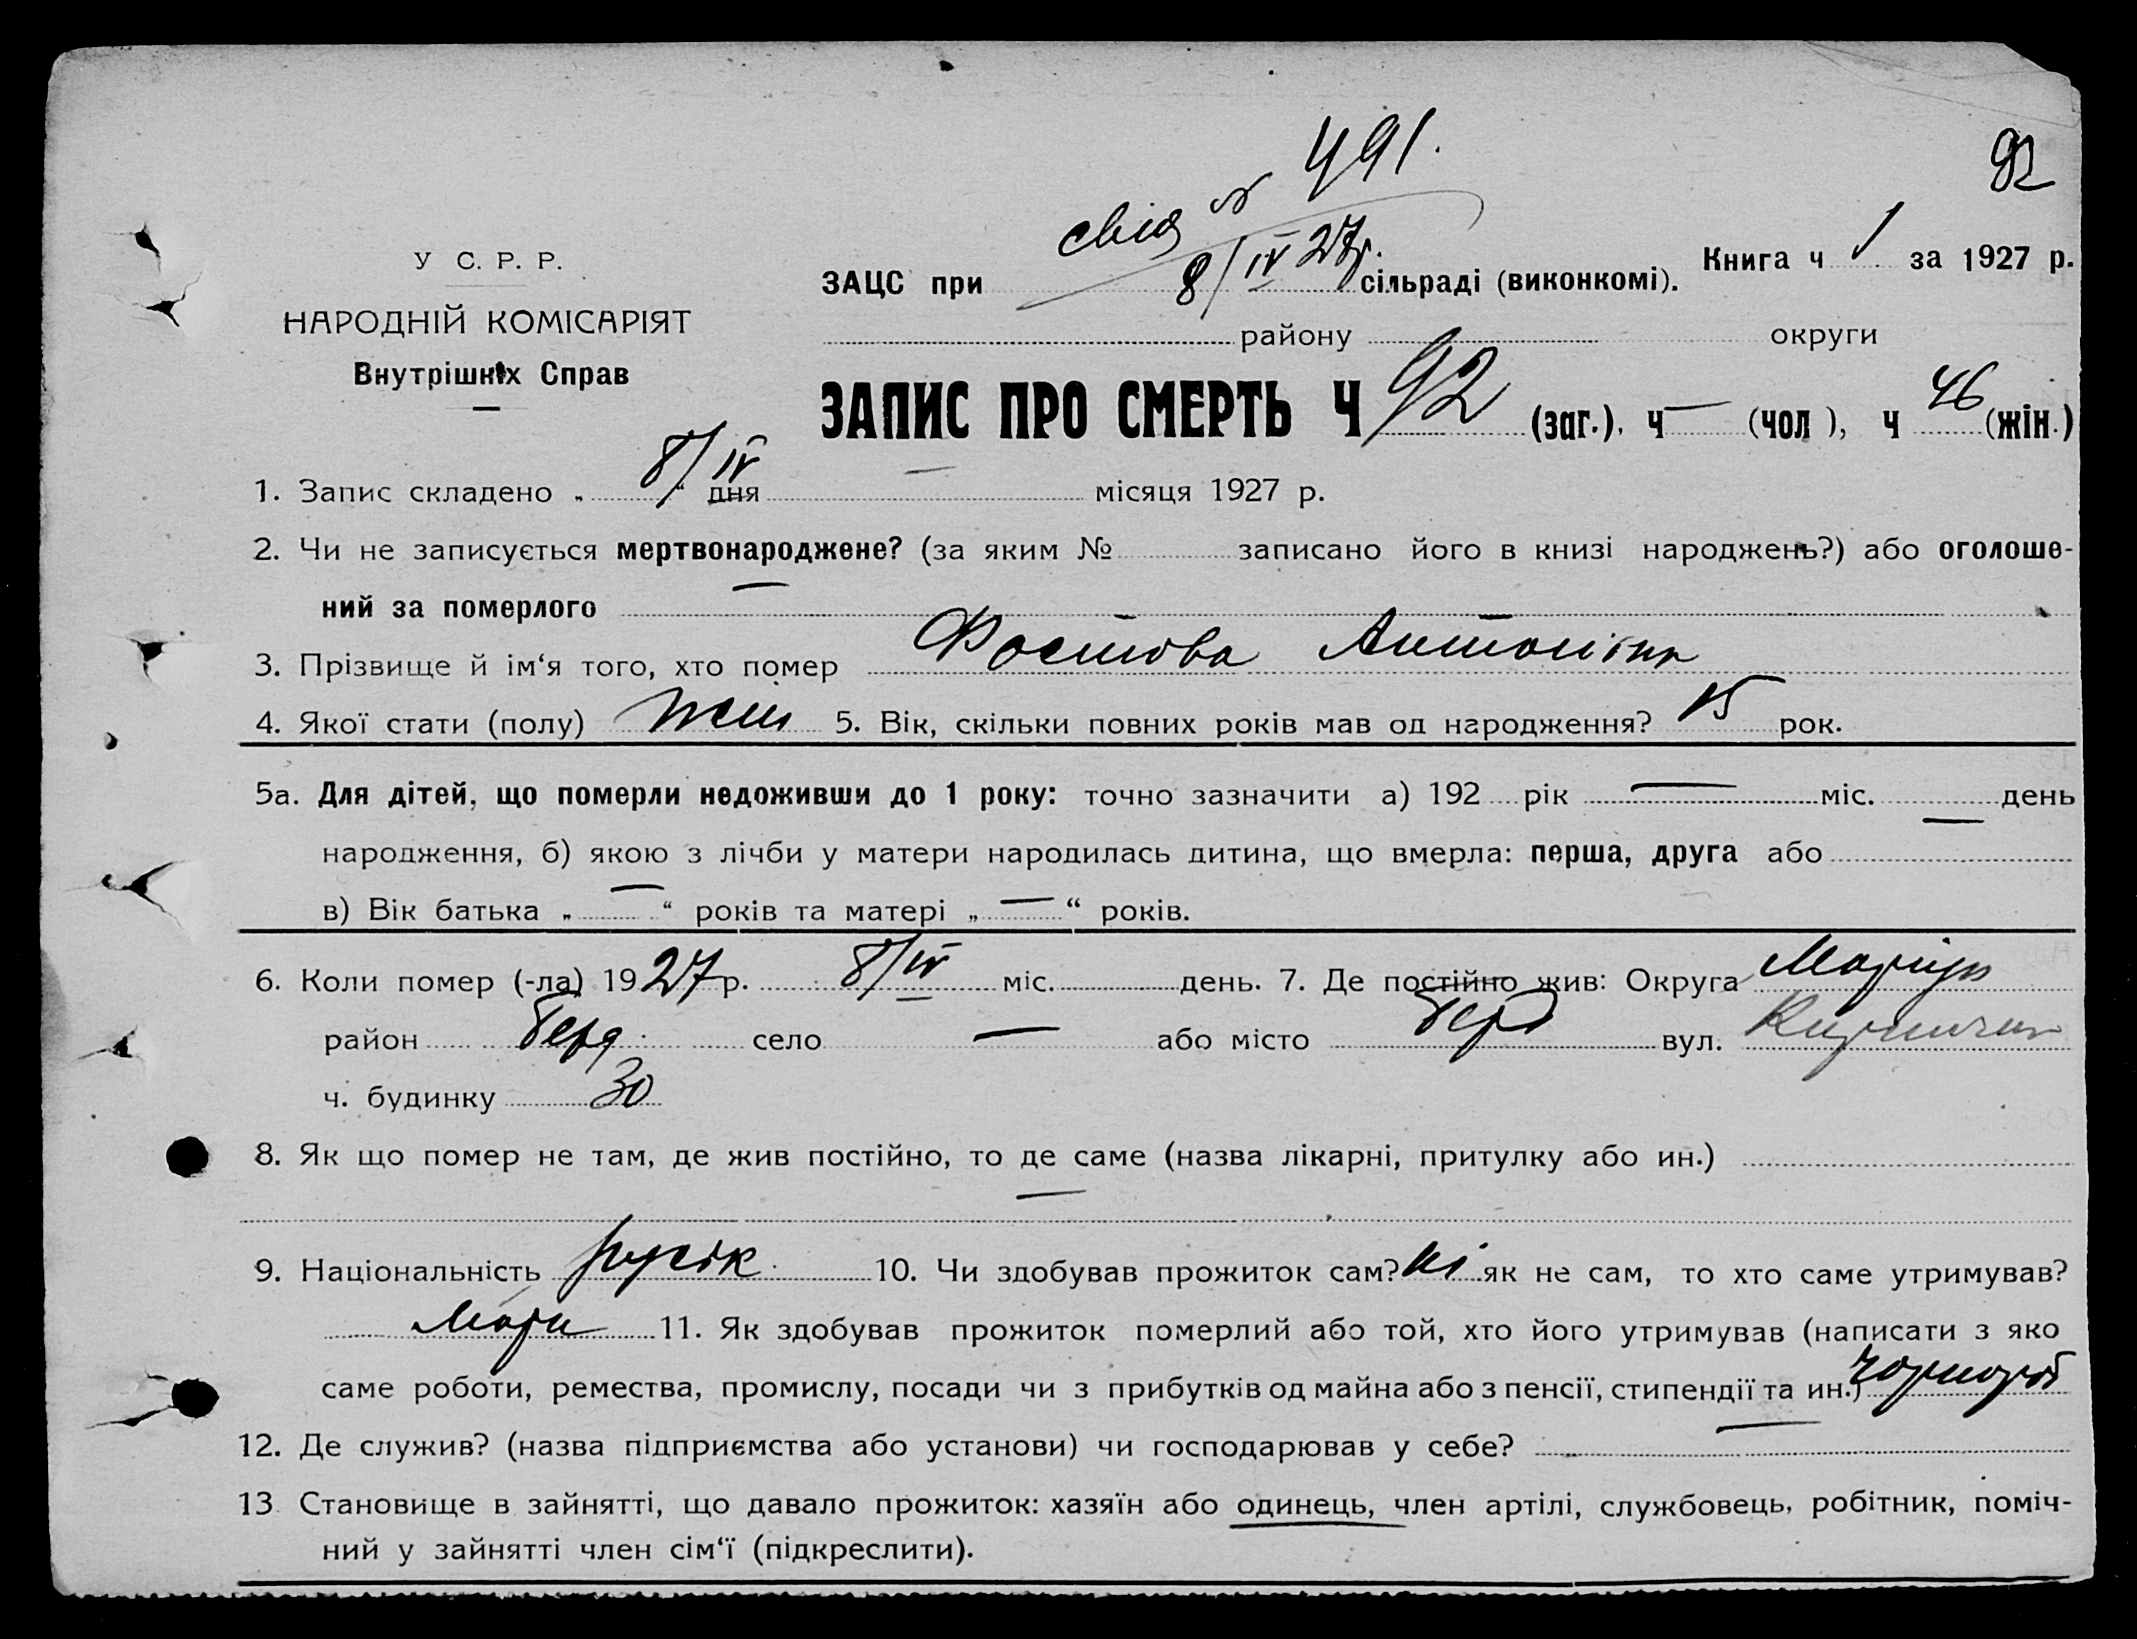 491.
92
свід №
8/IV 27р.
У С. Р. Р.
НАРОДНІЙ КОМІСАРІЯТ
Внутрішніх Справ
ЗАЦС при сільраді (виконкомі). Книга ч 1 за 1927 р.
району округи
ЗАПИС ПРО СМЕРТЬ Ч 92 (заг.), ч — (чол), ч 46 (жін.)
1. Запис складено „ 8/IV “ дня — місяця 1927 р.
2. Чи не записується мертвонароджене? (за яким № записано його в книзі народжень?) або оголоше-
ний за померлого —
3. Прізвище й ім‘я того, хто помер Фостова Антоніна
4. Якої стати (полу) жін 5. Вік, скільки повних років мав од народження? 15 рок.
5а. Для дітей, що померли недоживши до 1 року: точно зазначити а) 192 рік — міс. — день
народження, б) якою з лічби у матери народилась дитина, що вмерла: перша, друга або
в) Вік батька „ — “ років та матері „ — “ років.
6. Коли помер (-ла) 1927 р. 8/IV міс. день. 7. Де постійно жив: Округа Маріуп
район Берд. село — або місто Берд вул.
ч. будинку 30
8. Як що помер не там, де жив постійно, то де саме (назва лікарні, притулку або ин.)
—
9. Національність русік. 10. Чи здобував прожиток сам? ні як не сам, то хто саме утримував?
11. Як здобував прожиток померлий або той, хто його утримував (написати з яко
саме роботи, ремества, промислу, посади чи з прибутків од майна або з пенсії, стипендії та ин.) чорнороб
12. Де служив? (назва підприємства або установи) чи господарював у себе? —
13. Становище в зайнятті, що давало прожиток: хазяїн або одинець, член артілі, службовець, робітник, поміч-
ний у зайнятті член сім‘ї (підкреслити).